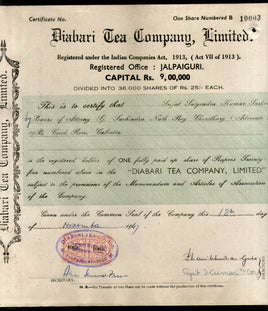 Certificate No.
One Share Numbered B 10003
Diabari Tea Company, Limited.
Registered under the Indian Companies Act, 1913, (Act VII of 1913).
Registered Office : JALPAIGURI.
CAPITAL Rs. 9,00,000
DIVIDED INTO 36,000 SHARES OF RS. 25/- EACH.
This is to certify that Srijut Satyendra Kumar
by Power of Attorney Nath Roy Chowdhury (Advocate
Creek Row, Calcutta
is the registered holder of ONE fully paid up share of Rupees Twenty
five numbered above in the "DIABARI TEA COMPANY, LIMITED"
subject to the provisions of the Memorandum and Articles of Association
of the Company.
Given under the Common Seal of the Company this
November 196
SECRETARY.
N. B.—No Transfer of this Share can be made without the production of this certificate.
Diabari Tea Company, Limited.